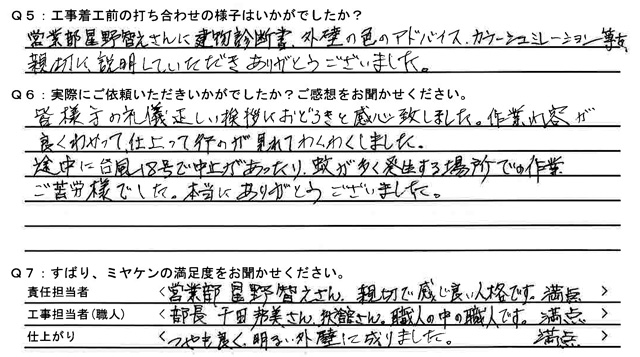 Q5：工事着工前の打ち合わせの様子はいかがでしたか？
営業部星野智えさんに建物診断書、外壁の色のアドバイス、カラーシュミレーション等も
親切に説明していただきありがとうございました。
Q6：実際にご依頼いただきいかがでしたか？ご感想をお聞かせください。
皆様方の礼儀正しい挨拶におどろきと感心致しました。作業内容が
良くわかって仕上って行のが見れてわくわくしました。
途中に台風18号で中止があったり、蚊が多く発生する場所での作業
ご苦労様でした。本当にありがとうございました。
Q7：ずばり、ミヤケンの満足度をお聞かせください。
責任担当者 〈営業部 星野智えさん、親切で感じ良い人格です。満点 〉
工事担当者(職人) 〈部長 千田邦美さん、 さん。職人の中の職人です。満点 〉
仕上がり 〈つやも良く、明るい外壁に成りました。 満点 〉